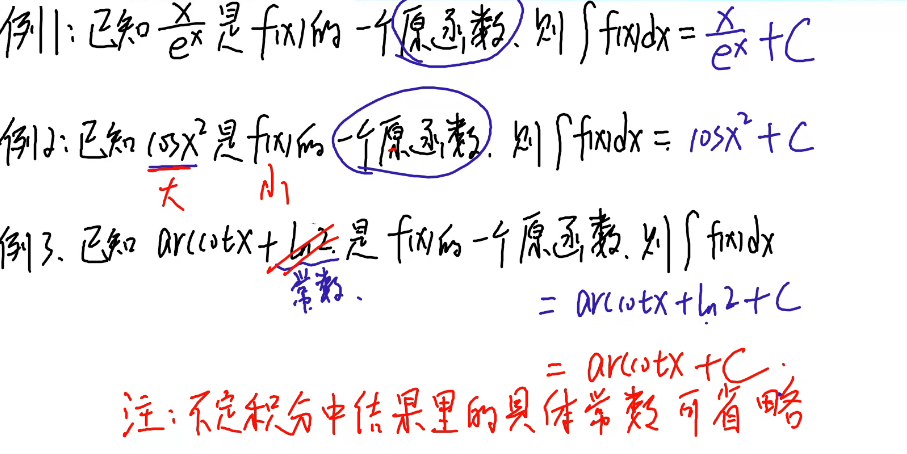 例1:已知 x/e^x 是 f(x)的一个原函数.则∫f(x)dx = x/e^x + C
例2:已知 cosx² 是 f(x)的一个原函数.则∫f(x)dx = cosx² + C
大 小
例3、已知 arccotx + ln2 是 f(x)的一个原函数.则∫f(x)dx
常数.
= arccotx + ln2 + C
= arccotx + C.
注:不定积分中结果里的具体常数可省略